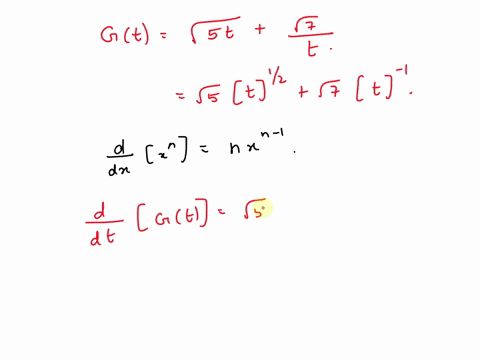 G(t) = √5t + √7/t.
= √5 [t]^{1/2} + √7 [t]^{-1}.
d/dx [x^n] = n x^{n-1}.
d/dt [G(t)] = √5